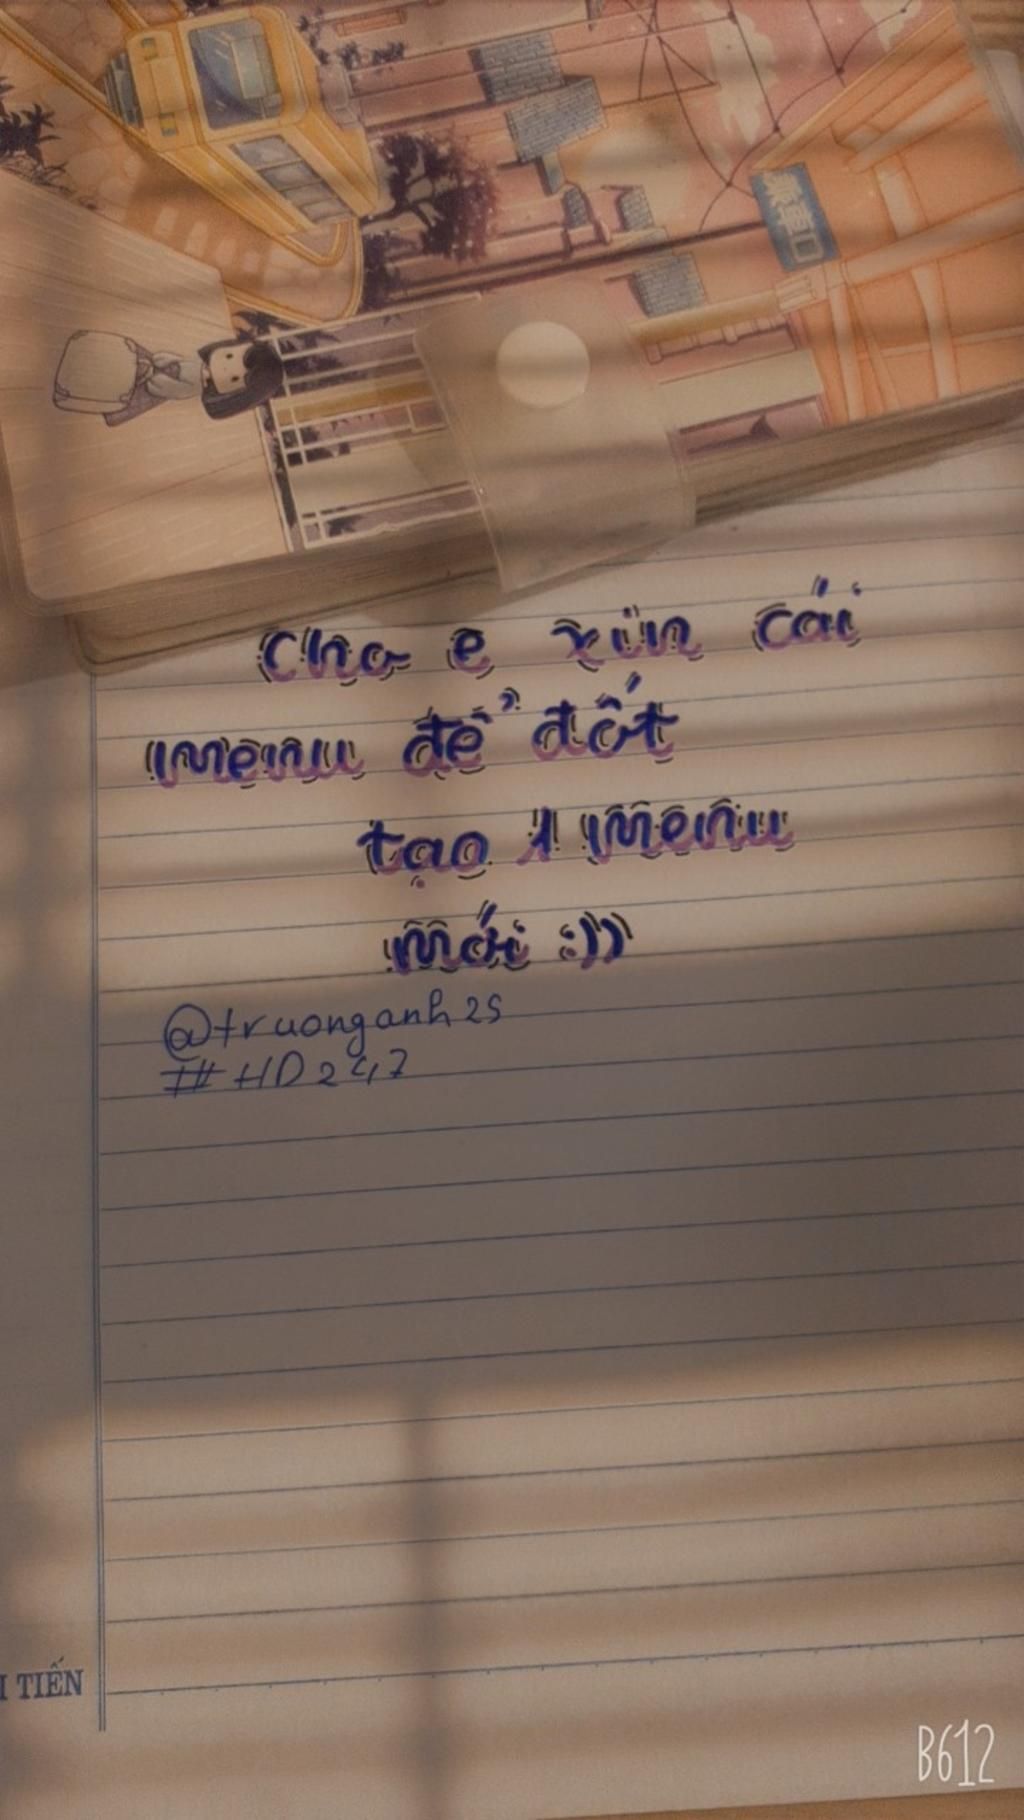 乗車口
Cho e xin cái
menu để đốt
tạo 1 menu
mới :))
@truonganh2s
#HD247
I TIẾN
B612